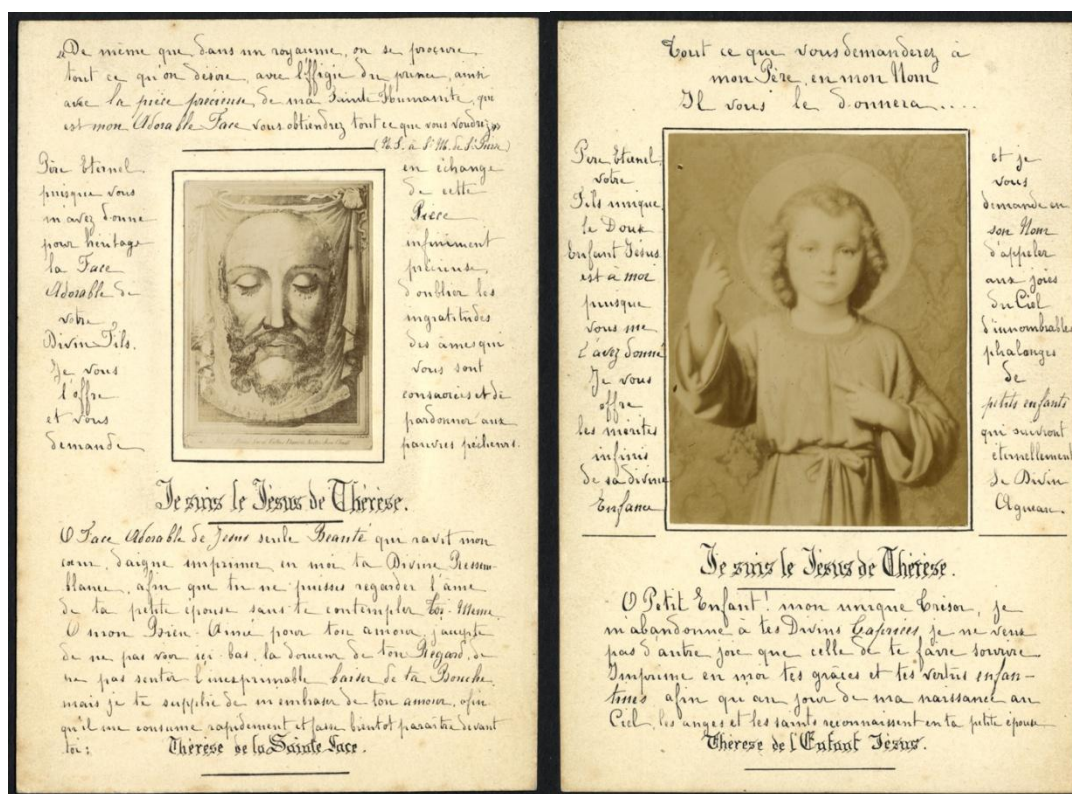 "De même que dans un royaume, on se procure
tout ce qu'on désire, avec l'effigie du prince, ainsi
avec la pièce précieuse de ma Sainte Humanité, qui
est mon Adorable Face vous obtiendrez tout ce que vous voudrez"
(N.S. à Sr M. de St Pierre)
Père Eternel,
puisque vous
m'avez donné
pour héritage
la Face
Adorable de
votre
Divin Fils.
Je vous
l'offre
et vous
demande
en échange
de cette
Pièce
infiniment
précieuse,
d'oublier les
ingratitudes
des âmes qui
vous sont
consacrées et de
pardonner aux
pauvres pécheurs.
Je suis le Jésus de Thérèse.
O Face Adorable de Jésus seule Beauté qui ravit mon
cœur, daigne imprimer en moi ta Divine Ressem-
blance, afin que tu ne puisses regarder l'âme
de ta petite épouse sans te contempler Toi-Même.
O mon Bien-Aimé pour ton amour, j'accepte
de ne pas voir ici-bas, la douceur de ton Regard, de
ne pas sentir l'inexprimable baiser de ta Bouche,
mais je te supplie de m'embraser de ton amour, afin
qu'il me consume rapidement et fasse bientôt paraître devant
toi:
Thérèse de la Sainte Face.
Tout ce que vous demanderez à
mon Père, en mon Nom
Il vous le donnera.....
Père Eternel,
votre
Fils unique,
le Doux
Enfant Jésus
est à moi
puisque
vous me
l'avez donné
Je vous
offre
les mérites
infinis
de sa divine
Enfance
et je
vous
demande en
son Nom
d'appeler
aux joies
du Ciel
d'innombrables
phalanges
de
petits enfants
qui suivront
éternellement
le Divin
Agneau.
Je suis le Jésus de Thérèse.
O Petit Enfant! mon unique Trésor, je
m'abandonne à tes Divins Caprices, je ne veux
pas d'autre joie que celle de te faire sourire.
Imprime en moi tes grâces et tes vertus enfan-
tines, afin qu'au jour de ma naissance au
Ciel, les anges et les saints reconnaissent en ta petite épouse
Thérèse de l'Enfant Jésus.